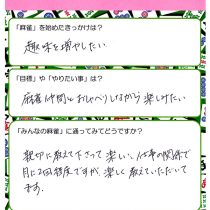 「麻雀」を始めたきっかけは?
趣味を増やしたい
「目標」や「やりたい事」は?
麻雀仲間とおしゃべりしながら楽しけたい
「みんなの麻雀」に通ってみてどうですか?
親切に教えて下さって楽しい、仕事の関係で
月に2回程度ですが、楽しく教えていただいて
ます。